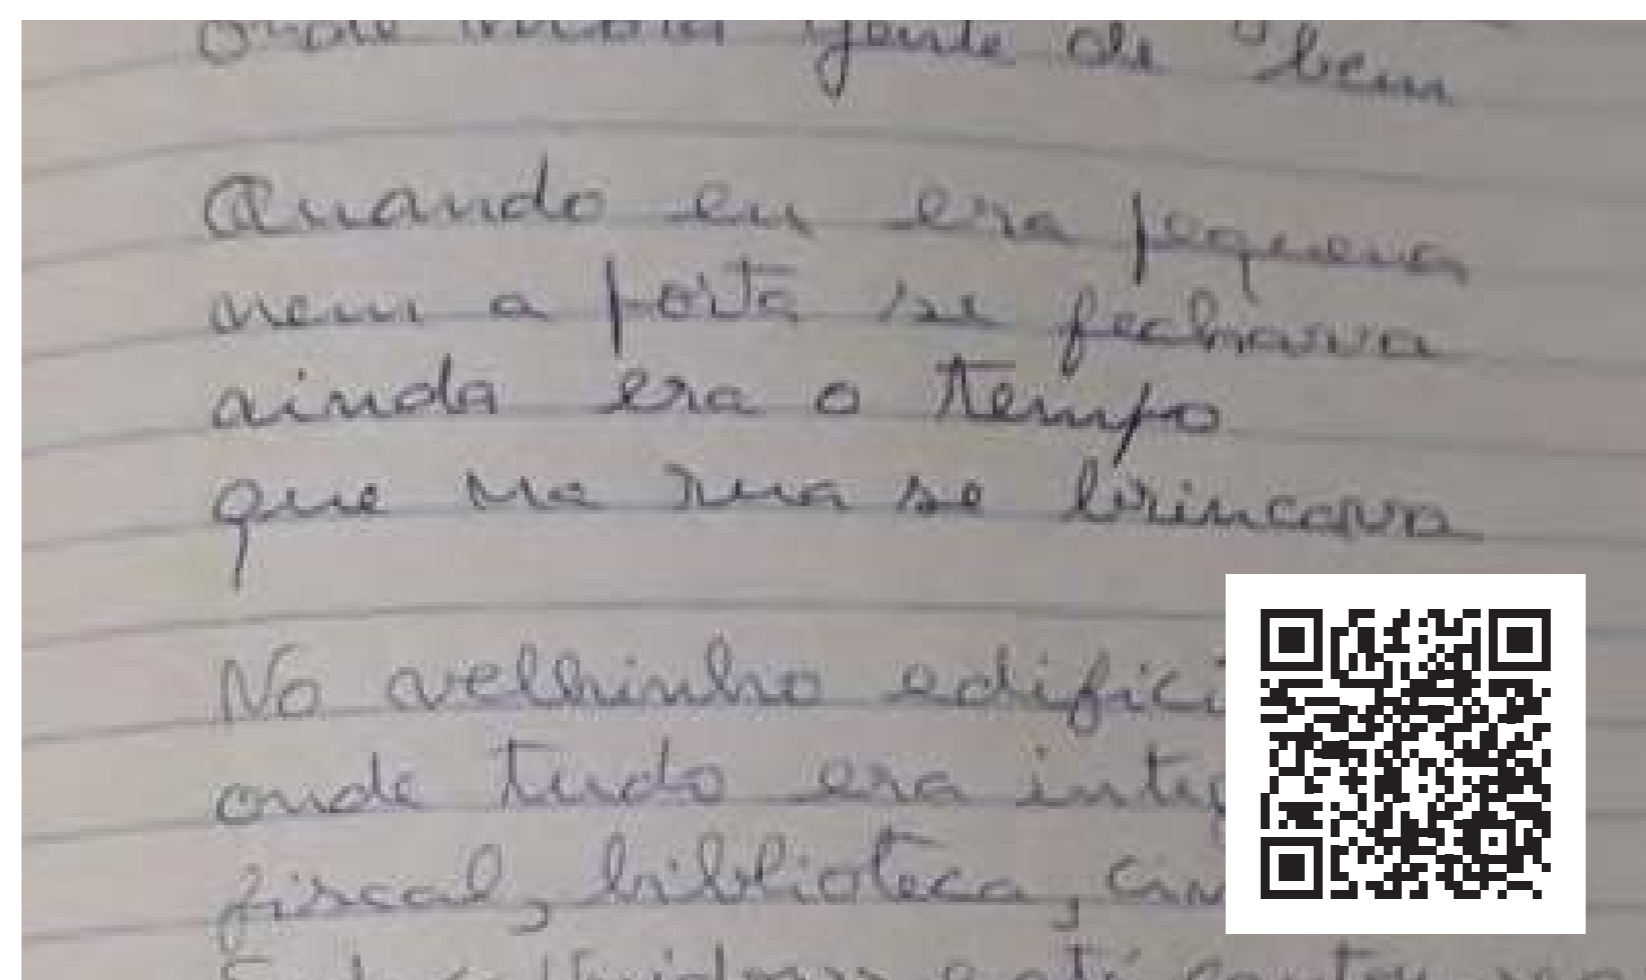 onde mora gente de bem
Quando eu era pequena
nem a porta se fechava
ainda era o tempo
que na rua se brincava
No velhinho edifíci
onde tudo era
fiscal, biblioteca,